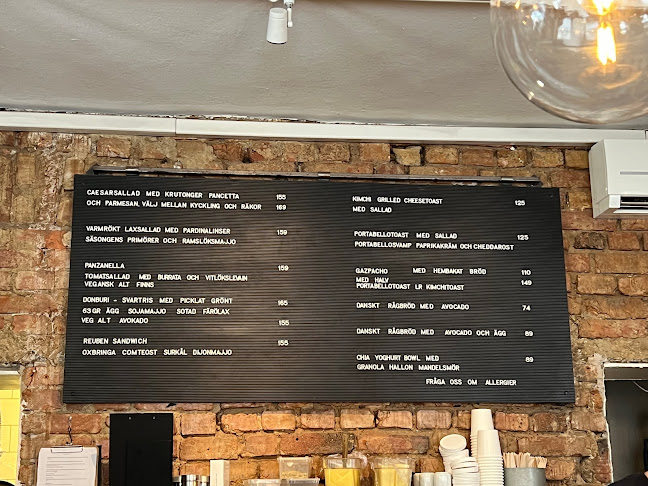 CAESARSALLAD MED KRUTONGER PANCETTA 155
OCH PARMESAN, VÄLJ MELLAN KYCKLING OCH RÄKOR 169
VARMRÖKT LAXSALLAD MED PARDINALINSER 159
SÄSONGENS PRIMÖRER OCH RAMSLÖKSMAJJO
PANZANELLA 159
TOMATSALLAD MED BURRATA OCH VITLÖKSLEVAIN
VEGANSK ALT FINNS
DONBURI - SVARTRIS MED PICKLAT GRÖNT 165
63GR ÄGG SOJAMAJJO SOTAD FÄRÖLAX
VEG ALT AVOKADO 155
REUBEN SANDWICH 155
OXBRINGA COMTEOST SURKÅL DIJONMAJJO
KIMCHI GRILLED CHEESETOAST 125
MED SALLAD
PORTABELLOTOAST MED SALLAD 125
PORTABELLOSVAMP PAPRIKAKRÄM OCH CHEDDAROST
GAZPACHO MED HEMBAKAT BRÖD 110
MED HALV 149
PORTABELLOTOAST LR KIMCHITOAST
DANSKT RÅGBRÖD MED AVOCADO 74
DANSKT RÅGBRÖD MED AVOCADO OCH ÄGG 89
CHIA YOGHURT BOWL MED 89
GRANOLA HALLON MANDELSMÖR
FRÅGA OSS OM ALLERGIER